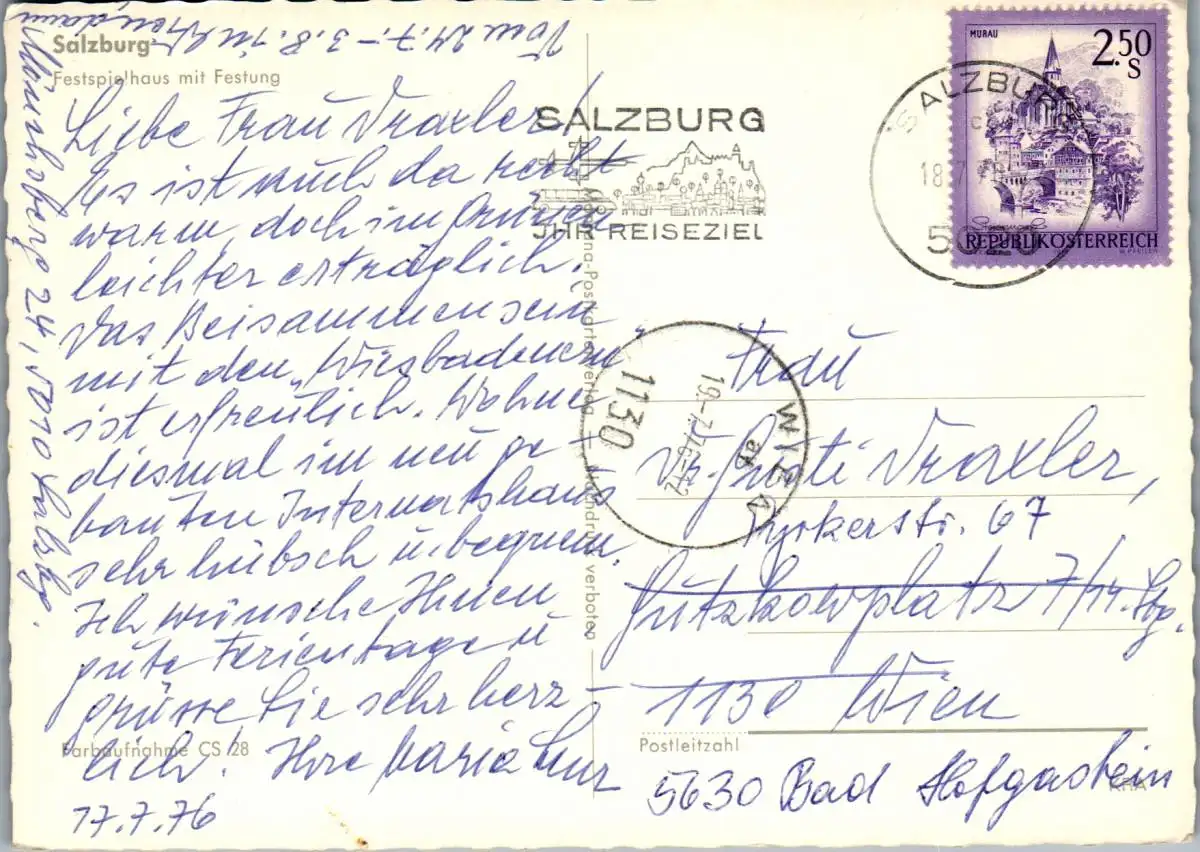 Salzburg
Festspielhaus mit Festung
Vom 24.7. – 3.8. in
Mönchsberg 24, 5010 Salzbg.
Liebe Frau Draxler!
Es ist auch da recht
warm, doch im Grünen
leichter erträglich.
Das Beisammensein
mit den „Wiesbadenern"
ist erfreulich. Wohne
diesmal im neu ge-
bauten Internatshaus
sehr hübsch u. bequem.
Ich wünsche Ihnen
gute Ferientage u
grüsse Sie sehr herz-
lich! Ihre Maria
17.7.76
Farbaufnahme CS 28
SALZBURG
IHR REISEZIEL
SALZBURG
18.7.
5020
MURAU
2.50
S
REPUBLIK ÖSTERREICH
WIEN
19.-7.76-12
1130
Frau
Dr. Gusti Draxler,
Pyrkerstr. 67
Gutzkowplatz 7/14. Stg.
1130 Wien
Postleitzahl
5630 Bad Hofgastein
KRA